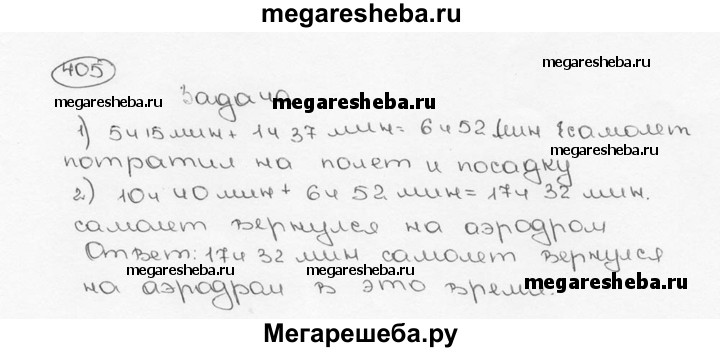 megaresheba.ru
405
megaresheba.ru
megaresheba.ru
megaresheba.ru
Задача
1) 5ч 15 мин + 1ч 37 мин = 6ч 52 мин самолет
потратил на полет и посадку
megaresheba.ru
megaresheba.ru
2) 10ч 40 мин + 6ч 52 мин = 17ч 32 мин.
самолет вернулся на аэродром
Ответ: 17ч 32 мин самолет вернулся
megaresheba.ru
megaresheba.ru
megaresheba.ru
на аэродром в это время.
Мегарешеба.ру